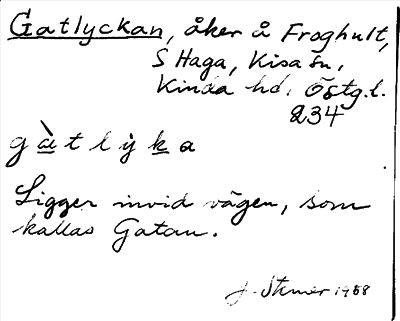 Gatlyckan, åker å Froghult,
S Haga, Kisa sn,
Kinda hd. Östg.l.
234
g à t l ỳ k a
Ligger invid vägen, som
kallas Gatan.
1958